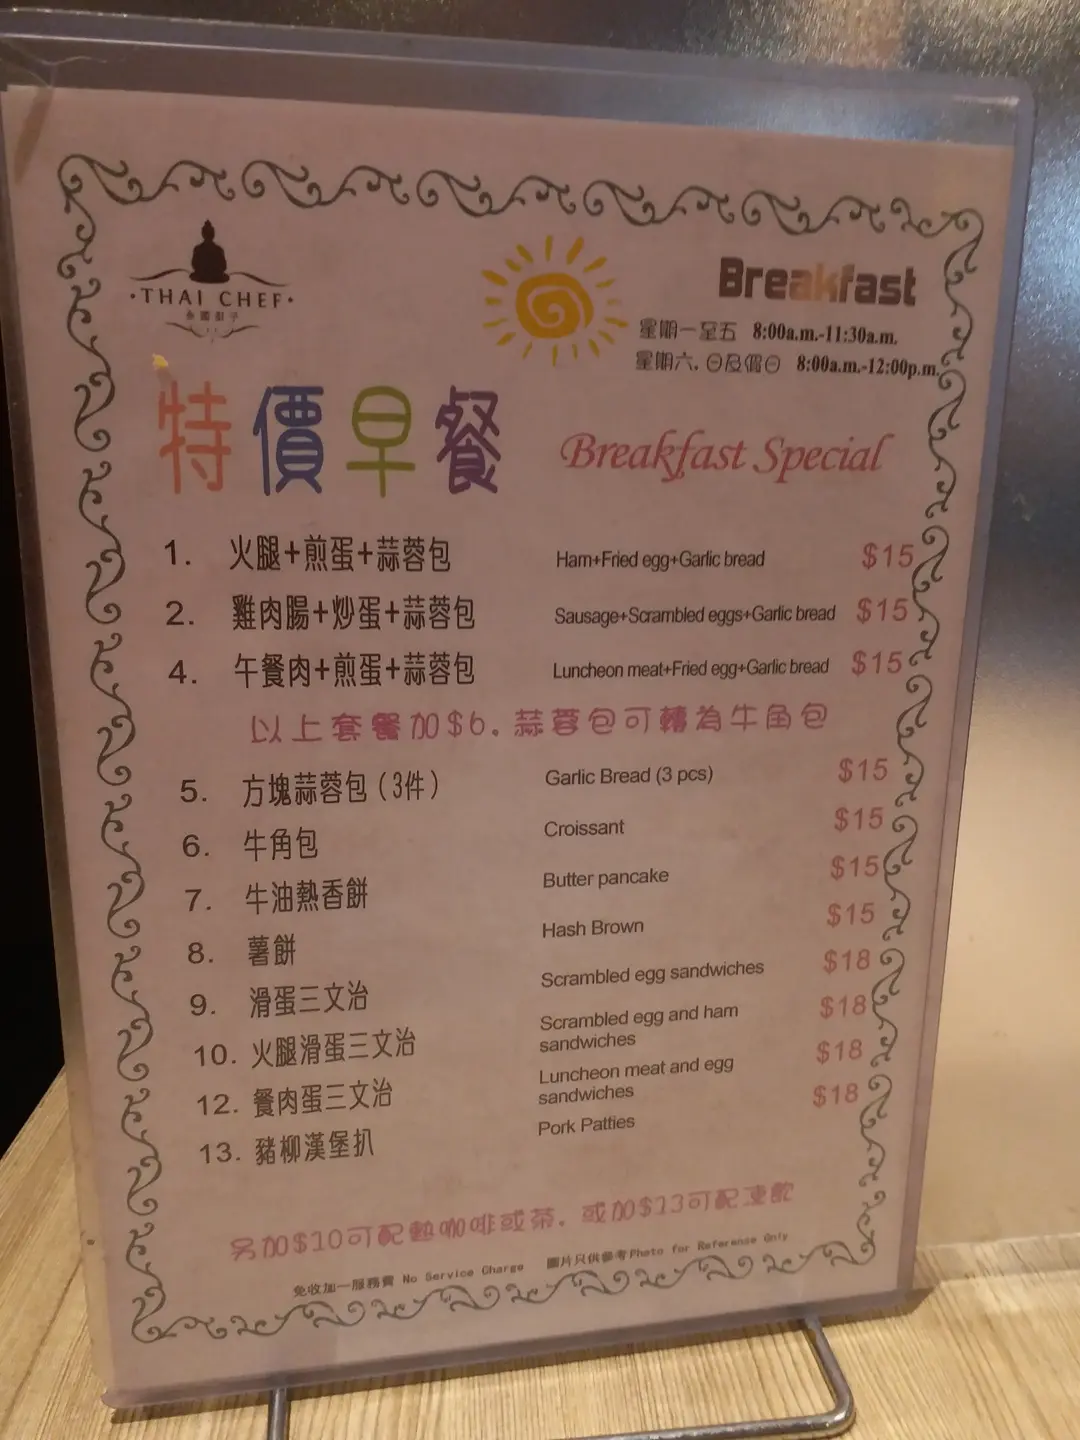 ·THAI CHEF·
泰國廚子
Breakfast
星期一至五 8:00a.m.-11:30a.m.
星期六,日及假日 8:00a.m.-12:00p.m.
特價早餐 Breakfast Special
1. 火腿+煎蛋+蒜蓉包 Ham+Fried egg+Garlic bread $15
2. 雞肉腸+炒蛋+蒜蓉包 Sausage+Scrambled eggs+Garlic bread $15
4. 午餐肉+煎蛋+蒜蓉包 Luncheon meat+Fried egg+Garlic bread $15
以上套餐加$6,蒜蓉包可轉為牛角包
5. 方塊蒜蓉包(3件) Garlic Bread (3 pcs) $15
6. 牛角包 Croissant $15
7. 牛油熱香餅 Butter pancake $15
8. 薯餅 Hash Brown $15
9. 滑蛋三文治 Scrambled egg sandwiches $18
10. 火腿滑蛋三文治 Scrambled egg and ham sandwiches $18
12. 餐肉蛋三文治 Luncheon meat and egg sandwiches $18
13. 豬柳漢堡扒 Pork Patties $18
另加$10可配熱咖啡或茶,或加$13可配凍飲
免收加一服務費 No Service Charge 圖片只供參考Photo for Reference Only